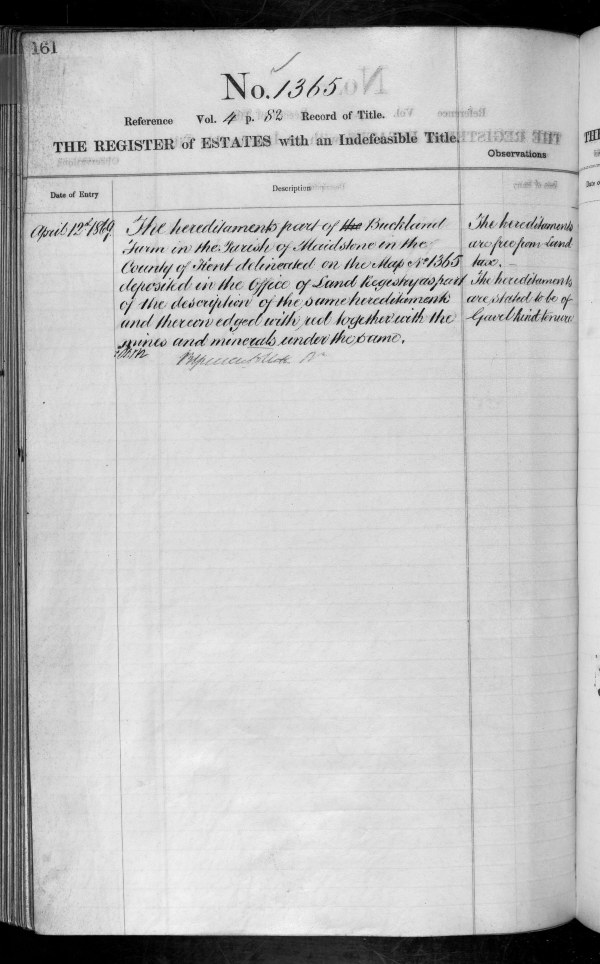 161
No. 1365
Reference Vol. 4 p. 82 Record of Title.
THE REGISTER of ESTATES with an Indefeasible Title.
Observations
Date of Entry
Description
April 12th 1869
The hereditaments part of the Buckland
Farm in the Parish of Maidstone in the
County of Kent delineated on the Map No 1365
deposited in the Office of Land Registry as part
of the description of the same hereditaments
and thereon edged with red together with the
mines and minerals under the same.
The hereditaments
are free from Land
tax. –
The hereditaments
are stated to be of
Gavelkind tenure
THE
Date of